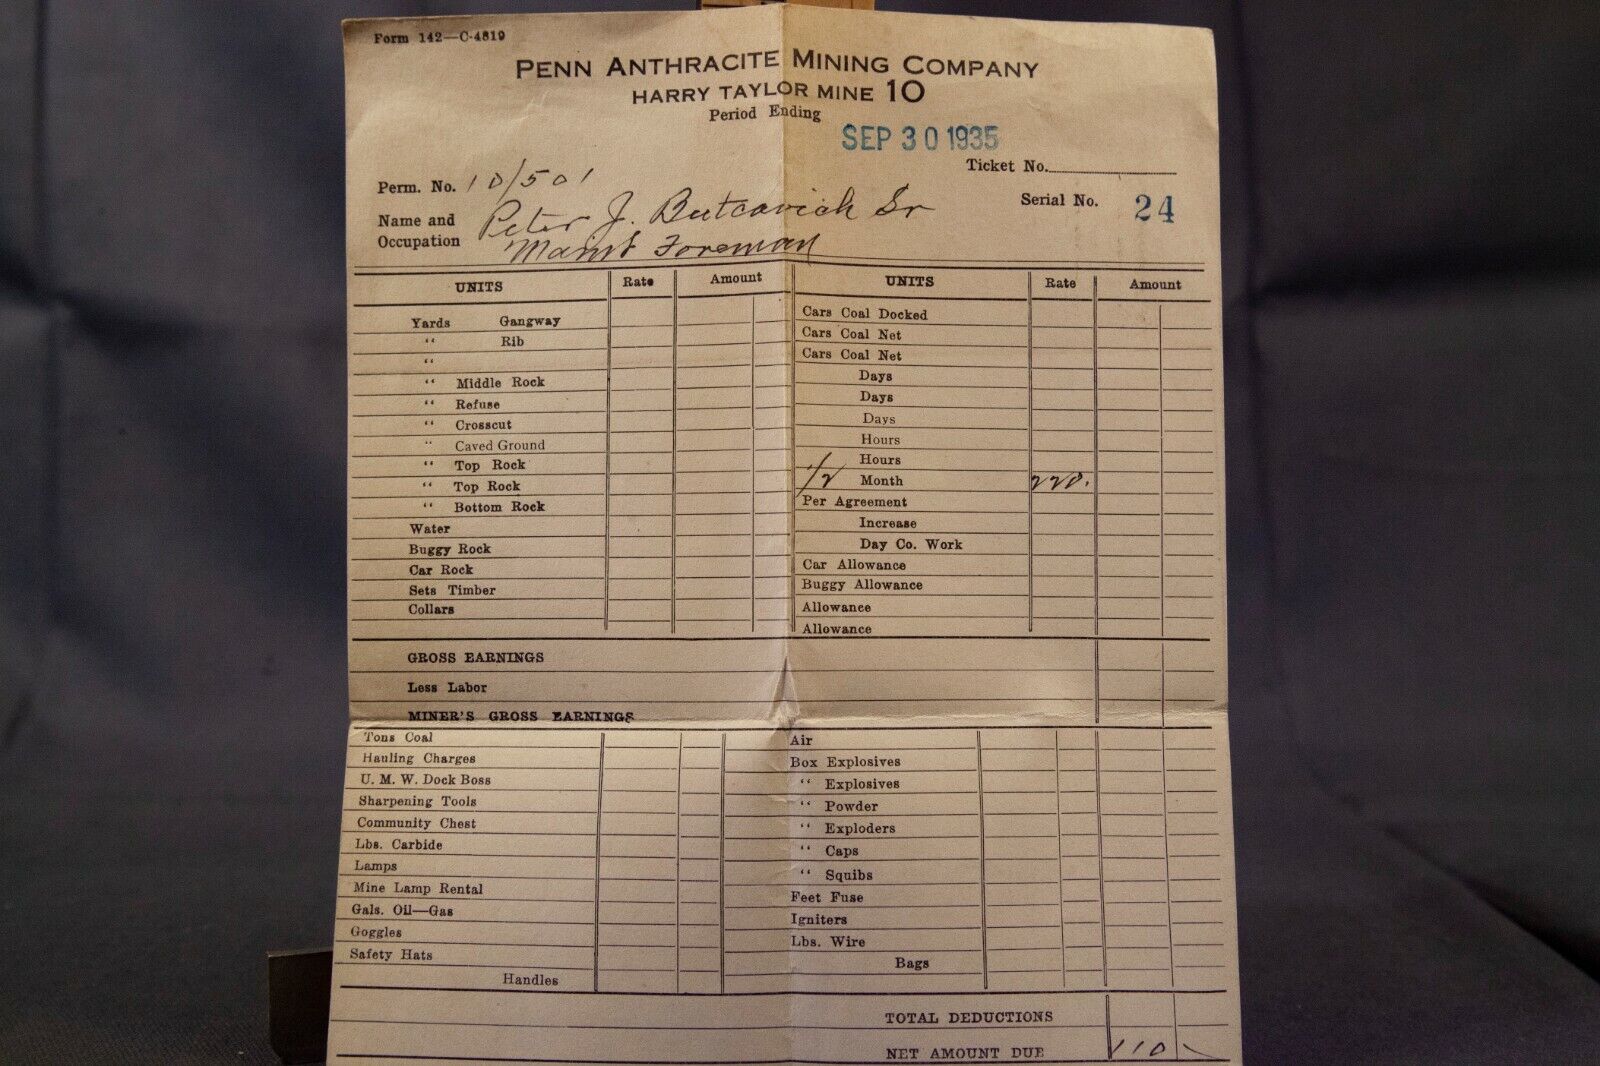 Form 142—C-4819
PENN ANTHRACITE MINING COMPANY
HARRY TAYLOR MINE 10
Period Ending
SEP 30 1935
Ticket No.
Perm. No. 10/501
Serial No. 24
Name and Occupation
Peter J. Butcavich Sr
Maint Foreman
UNITS Rate Amount UNITS Rate Amount
Yards Gangway
" Rib
"
" Middle Rock
" Refuse
" Crosscut
" Caved Ground
" Top Rock
" Top Rock
" Bottom Rock
Water
Buggy Rock
Car Rock
Sets Timber
Collars
Cars Coal Docked
Cars Coal Net
Cars Coal Net
Days
Days
Days
Hours
Hours
1/2 Month 220.
Per Agreement
Increase
Day Co. Work
Car Allowance
Buggy Allowance
Allowance
Allowance
GROSS EARNINGS
Less Labor
MINER'S GROSS EARNINGS
Tons Coal
Hauling Charges
U. M. W. Dock Boss
Sharpening Tools
Community Chest
Lbs. Carbide
Lamps
Mine Lamp Rental
Gals. Oil—Gas
Goggles
Safety Hats
Handles
Air
Box Explosives
" Explosives
" Powder
" Exploders
" Caps
" Squibs
Feet Fuse
Igniters
Lbs. Wire
Bags
TOTAL DEDUCTIONS
NET AMOUNT DUE 110